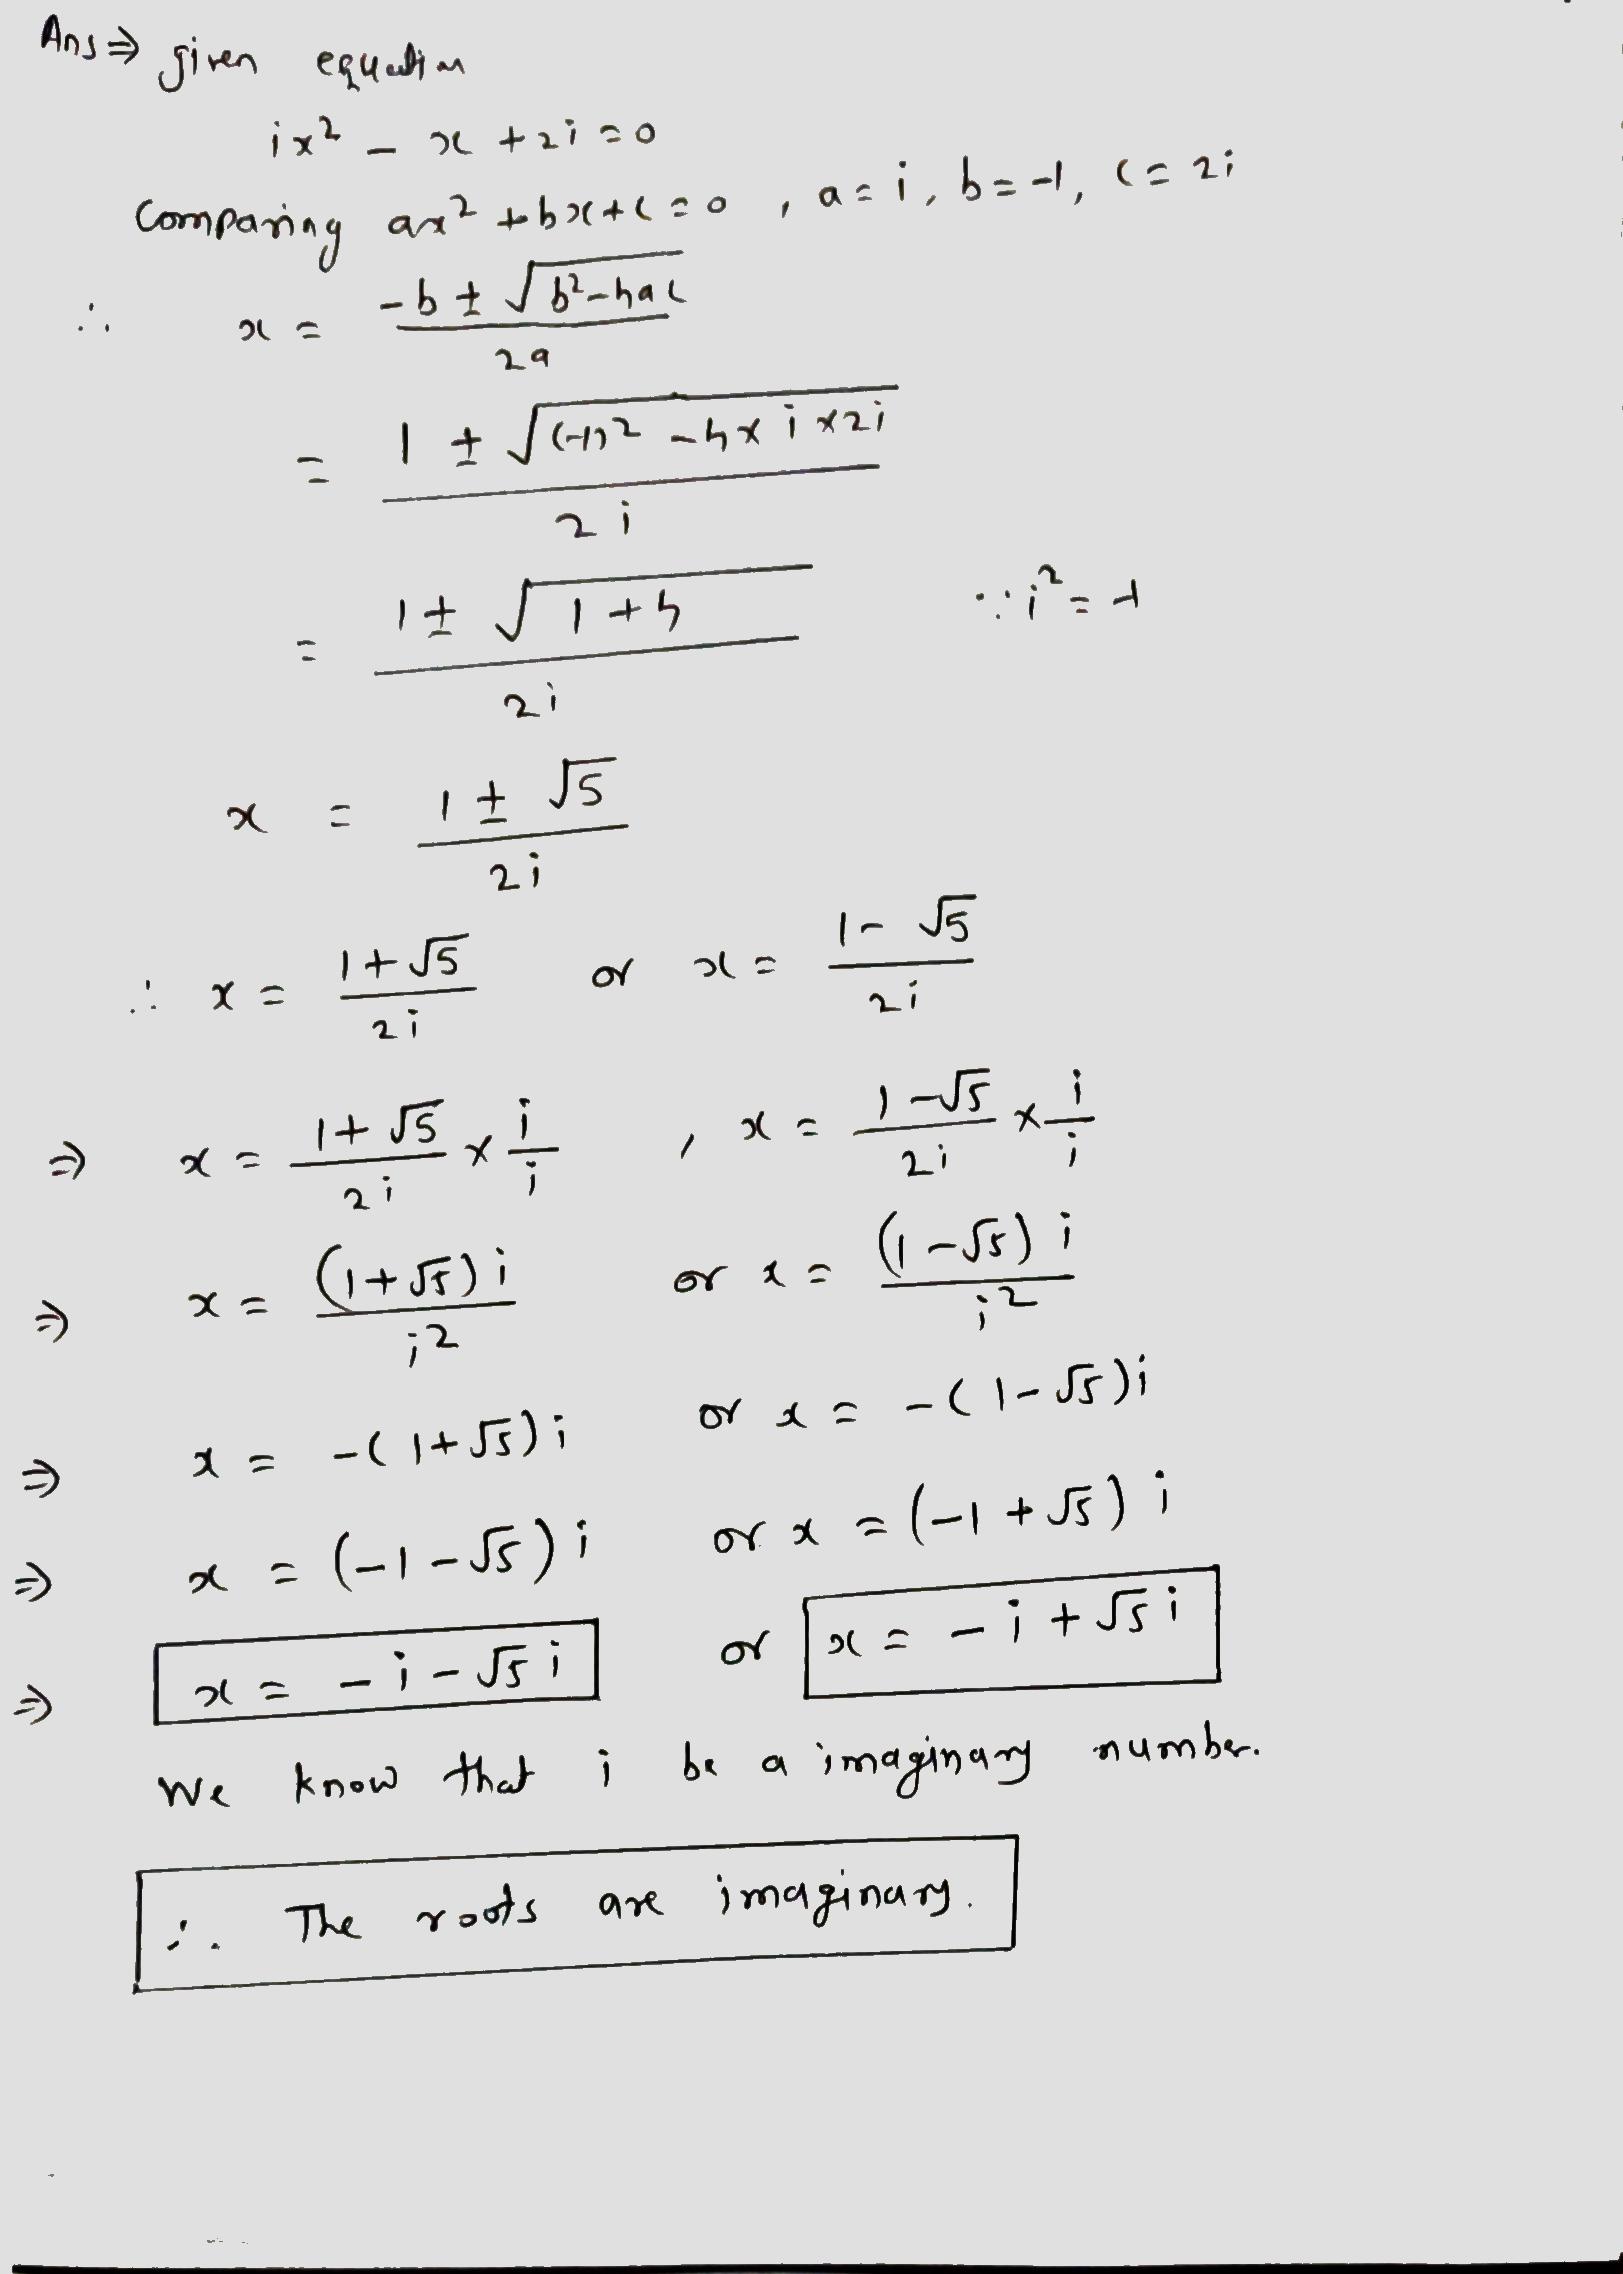 Ans ⇒ given equation
ix² − x + 2i = 0
Comparing ax² + bx + c = 0 , a = i, b = -1, c = 2i
∴ x = (-b ± √(b² - 4ac)) / 2a
= (1 ± √((-1)² - 4 × i × 2i)) / 2i
= (1 ± √(1 + 4)) / 2i ∵ i² = -1
x = (1 ± √5) / 2i
∴ x = (1 + √5) / 2i or x = (1 - √5) / 2i
⇒ x = (1 + √5) / 2i × i/i , x = (1 - √5) / 2i × i/i
⇒ x = (1 + √5) i / i² or x = (1 - √5) i / i²
⇒ x = -(1 + √5) i or x = -(1 - √5) i
⇒ x = (-1 - √5) i or x = (-1 + √5) i
⇒ x = - i - √5 i or x = - i + √5 i
We know that i be a imaginary number.
∴ The roots are imaginary.